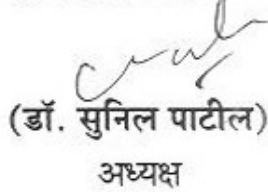 (डॉ. सुनिल पाटील)
अध्यक्ष